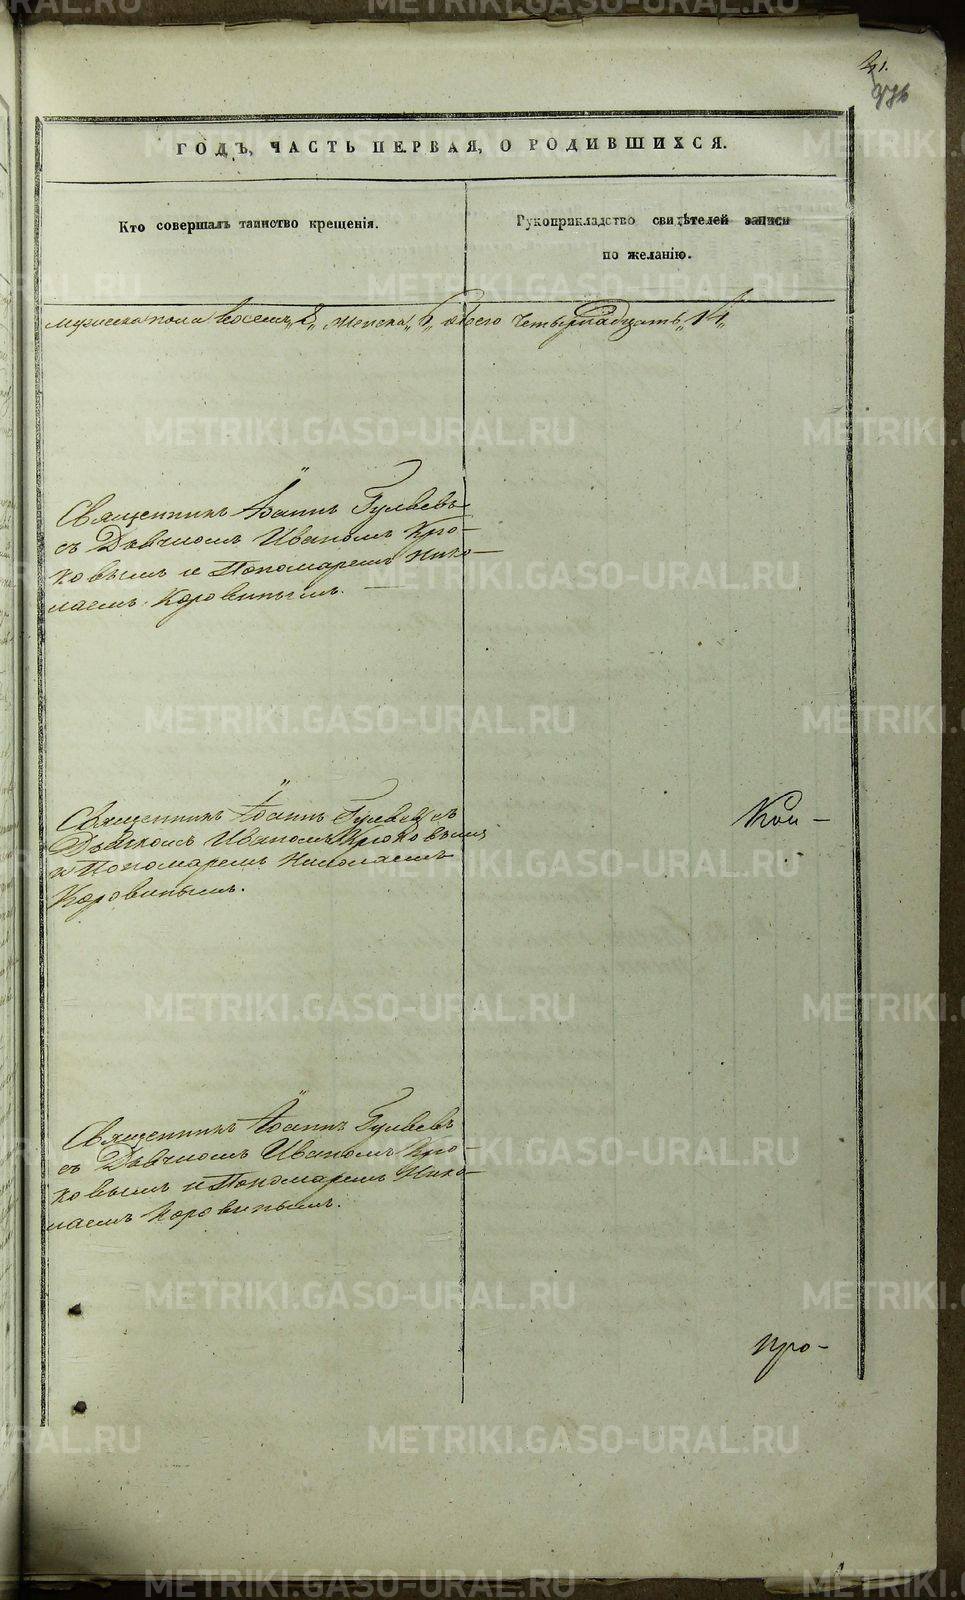 21.
ГОДЪ, ЧАСТЬ ПЕРВАЯ, О РОДИВШИХСЯ.
Кто совершалъ таинство крещенія.
Рукоприкладство свидѣтелей записи
по желанію.
мужеска пола восемь „8„ женска „6„ обоего четырнадцать „14„
Священникъ Іоаннъ Гуляевъ
съ Дьячкомъ Иваномъ Крю-
ковымъ и Пономаремъ Нико-
лаемъ Коровинымъ.
Священникъ Іоаннъ Гуляевъ съ
Дьячкомъ Иваномъ Крюковымъ
и Пономаремъ Николаемъ
Коровинымъ.
Кои-
Священникъ Іоаннъ Гуляевъ
съ Дьячкомъ Иваномъ Крю-
ковымъ и Пономаремъ Нико-
лаемъ Коровинымъ.
про-
METRIKI.GASO-URAL.RU